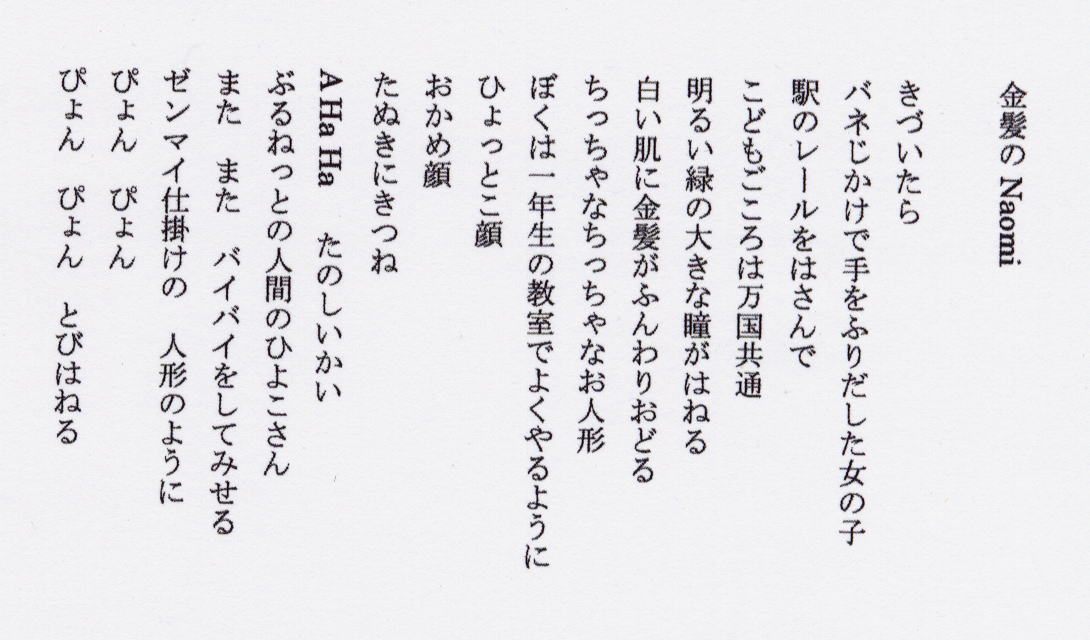 金髪の Naomi
きづいたら
バネじかけで手をふりだした女の子
駅のレールをはさんで
こどもごころは万国共通
明るい緑の大きな瞳がはねる
白い肌に金髪がふんわりおどる
ちっちゃなちっちゃなお人形
ぼくは一年生の教室でよくやるように
ひょっとこ顔
おかめ顔
たぬきにきつね
A Ha Ha　たのしいかい
ぶるねっとの人間のひよこさん
また　また　バイバイをしてみせる
ゼンマイ仕掛けの　人形のように
ぴょん　ぴょん
ぴょん　ぴょん　とびはねる